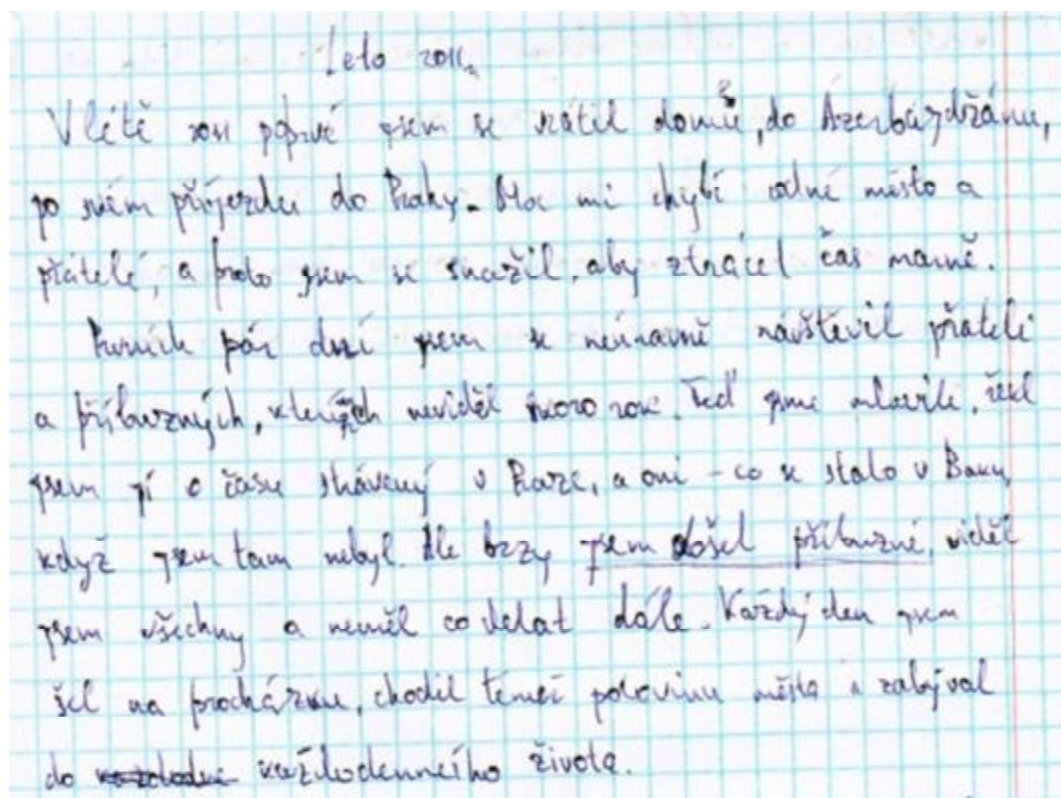 Leto 2011.
V létě 2011 poprvé jsem se vrátil domů, do Azerbajdžánu,
po svém příjezdu do Prahy. Moc mi chybí rodné místo a
přátelé, a proto jsem se snažil, aby ztrácel čas marně.
Prvních pár dní jsem se neúnavně návštěvil přateli
a příbuzných, kterých neviděl skoro rok. Teď jsme mluvile, řekl
jsem jí o času strávený v Praze, a oni - co se stalo v Baku,
když jsem tam nebyl. Ale brzy jsem došel příbuzné, viděl
jsem všechny a neměl co delat dále. Každý den jsem
šel na procházku, chodil téměř polovinu města a zabýval
do každodenneího života.